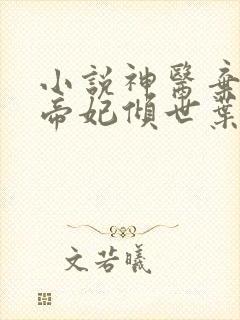 小說神醫棄
帝妃傾世葉
文若曦